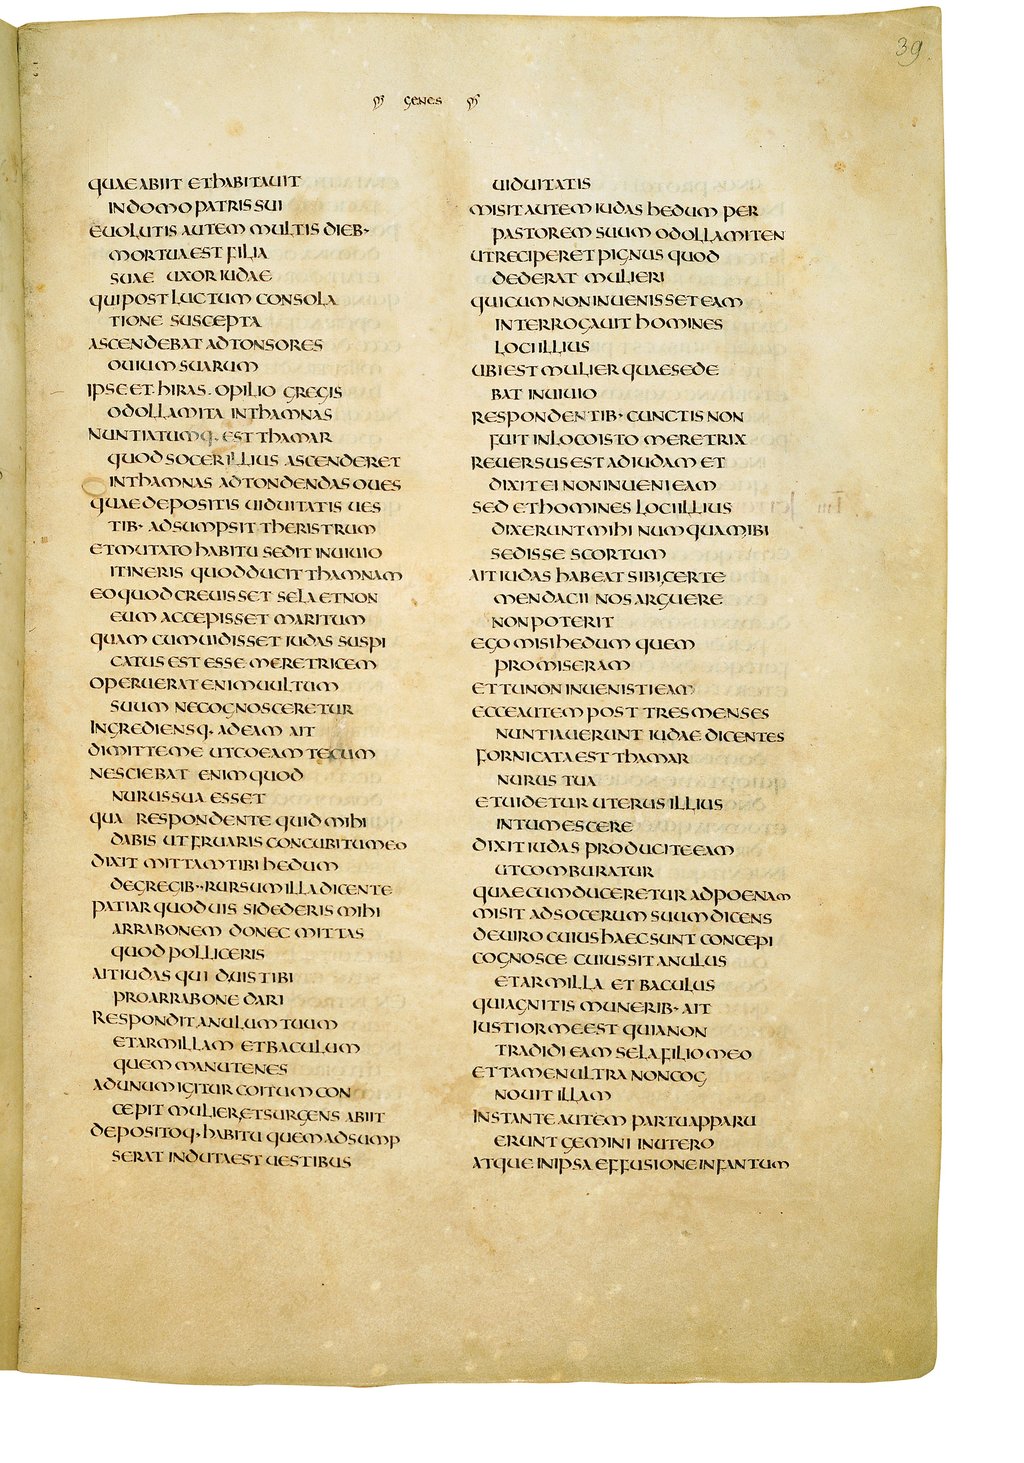 39
GENES
QUAE ABIIT ET HABITAUIT
IN DOMO PATRIS SUI
EUOLUTIS AUTEM MULTIS DIEB·
MORTUA EST FILIA
SUAE UXOR IUDAE
QUI POST LUCTUM CONSOLA
TIONE SUSCEPTA
ASCENDEBAT AD TONSORES
OUIUM SUARUM
IPSE ET · HIRAS · OPILIO GREGIS
ODOLLAMITA IN THAMNAS
NUNTIATUMQ· EST THAMAR
QUOD SOCER ILLIUS ASCENDERET
IN THAMNAS AD TONDENDAS OUES
QUAE DEPOSITIS UIDUITATIS UES
TIB· ADSUMPSIT THERISTRUM
ET MUTATO HABITU SEDIT IN UIUIO
ITINERIS QUOD DUCIT THAMNAM
EO QUOD CREUISSET SELA ET NON
EUM ACCEPISSET MARITUM
QUAM CUM UIDISSET IUDAS SUSPI
CATUS EST ESSE MERETRICEM
OPERUERAT ENIM UULTUM
SUUM NE COGNOSCERETUR
INGREDIENSQ· AD EAM AIT
DIMITTE ME UT COEAM TECUM
NESCIEBAT ENIM QUOD
NURUS SUA ESSET
QUA RESPONDENTE QUID MIHI
DABIS UT FRUARIS CONCUBITU MEO
DIXIT MITTAM TIBI HEDUM
DE GREGIB·· RURSUM ILLA DICENTE
PATIAR QUOD UIS SI DEDERIS MIHI
ARRABONEM DONEC MITTAS
QUOD POLLICERIS
AIT IUDAS QUID UIS TIBI
PRO ARRABONE DARI
RESPONDIT ANULUM TUUM
ET ARMILLAM ET BACULUM
QUEM MANU TENES
AD UNUM IGITUR COITUM CON
CEPIT MULIER ET SURGENS ABIIT
DEPOSITOQ· HABITU QUEM ADSUMP
SERAT INDUTA EST UESTIBUS
UIDUITATIS
MISIT AUTEM IUDAS HEDUM PER
PASTOREM SUUM ODOLLAMITEN
UT RECIPERET PIGNUS QUOD
DEDERAT MULIERI
QUI CUM NON INUENISSET EAM
INTERROGAUIT HOMINES
LOCI ILLIUS
UBI EST MULIER QUAE SEDE
BAT IN UIUIO
RESPONDENTIB· CUNCTIS NON
FUIT IN LOCO ISTO MERETRIX
REUERSUS EST AD IUDAM ET
DIXIT EI NON INUENI EAM
SED ET HOMINES LOCI ILLIUS
DIXERUNT MIHI NUMQUAM IBI
SEDISSE SCORTUM
AIT IUDAS HABEAT SIBI CERTE
MENDACII NOS ARGUERE
NON POTERIT
EGO MISI HEDUM QUEM
PROMISERAM
ET TU NON INUENISTI EAM
ECCE AUTEM POST TRES MENSES
NUNTIAUERUNT IUDAE DICENTES
FORNICATA EST THAMAR
NURUS TUA
ET UIDETUR UTERUS ILLIUS
INTUMESCERE
DIXIT IUDAS PRODUCITE EAM
UT COMBURATUR
QUAE CUM DUCERETUR AD POENAM
MISIT AD SOCERUM SUUM DICENS
DE UIRO CUIUS HAEC SUNT CONCEPI
COGNOSCE CUIUS SIT ANULUS
ET ARMILLA ET BACULUS
QUI AGNITIS MUNERIB· AIT
IUSTIOR ME EST QUIA NON
TRADIDI EAM SELA FILIO MEO
ET TAMEN ULTRA NON COG
NOUIT ILLAM
INSTANTE AUTEM PARTU APPARU
ERUNT GEMINI IN UTERO
ATQUE IN IPSA EFFUSIONE INFANTUM